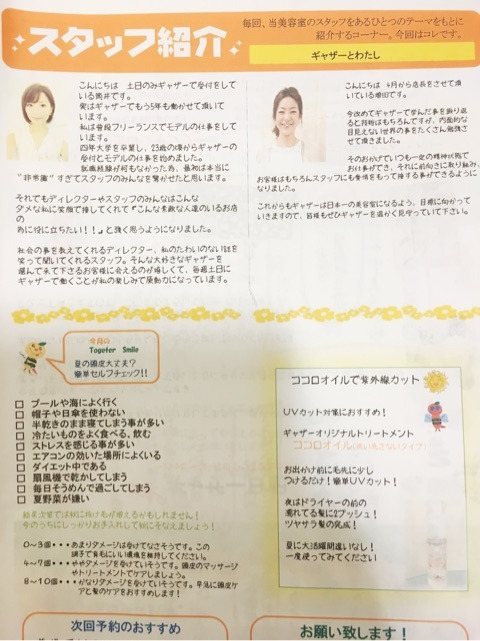 スタッフ紹介
毎回、当美容室のスタッフをあるひとつのテーマをもとに
紹介するコーナー。今回はコレです。
ギャザーとわたし
こんにちは 土日のみギャザーで受付をして
いる筒井です。
実はギャザーでもう5年も働かせて頂いて
います。
私は普段フリーランスでモデルの仕事をして
います。
四年大学を卒業し、23歳の頃からギャザーの
受付とモデルの仕事を始めました。
就職経験が何もなかった為、最初は本当に
"非常識"すぎてスタッフのみんなを驚かせたと思います。
それでもディレクターやスタッフのみんなはこんな
ダメな私に笑顔で接してくれて『こんな素敵な人達のいるお店
の
為に役に立ちたい!!』と強く思うようになりました。
社会の事を教えてくれるディレクター、私のたわいのない話を
笑って聞いてくれるスタッフ。そんな大好きなギャザーを
選んで来て下さるお客様に会えるのが嬉しくて、毎週土日に
ギャザーで働くことが私の楽しみで原動力になっています。
こんにちは 4月から店長をさせて頂
いている増田です。
今改めてギャザーで学んだ事を振り返
ると技術はもちろんですが、内面的な
目見えない世界の事をたくさん勉強さ
せて頂きました。
そのおかげでいつも一定の精神状態で
お仕事ができ、それに前向きに取り組み、
お客様はもちろんスタッフにも愛情をもって接する事ができるように
なりました。
これからもギャザーは日本一の美容室になるよう、目標に向かって
いきますので、皆様もぜひギャザーを温かく見守っていて下さい。
今月の
Togeter Smile
夏の頭皮大丈夫?
簡単セルフチェック!!
□ プールや海によく行く
□ 帽子や日傘を使わない
□ 半乾きのまま寝てしまう事が多い
□ 冷たいものをよく食べる、飲む
□ ストレスを感じる事が多い
□ エアコンの効いた場所によくいる
□ ダイエット中である
□ 扇風機で乾かしてしまう
□ 毎日そうめんで過ごしてしまう
□ 夏野菜が嫌い
結果次第では秋に抜け毛が増えるかもしれません!
今のうちにしっかりお手入れして秋にそなえましょう!
0~3個・・・あまりダメージは受けてなさそうです。この
調子で育毛にいい環境を維持してください。
4~7個・・・ややダメージを受けていそうです。頭皮のマッサージ
やトリートメントでケアしましょう。
8~10個・・・かなりダメージを受けていそうです。早急に頭皮ケ
アと髪のケアをおすすめします!
ココロオイルで紫外線カット
UVカット対策におすすめ!
ギャザーオリジナルトリートメント
ココロオイル(洗い流さないタイプ)
お出かけ前に毛先に少し
つけるだけ!簡単UVカット!
夜はドライヤーの前の
濡れてる髪に2プッシュ!
ツヤサラ髪の完成!
夏に大活躍間違いなし!
一度使ってみてください
次回予約のおすすめ
お願い致します!